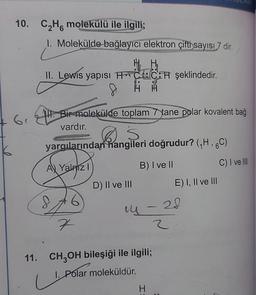 10. C₂H₆ molekülü ile ilgili;
I. Molekülde bağlayıcı elektron çifti sayısı 7 dir.
H H
II. Lewis yapısı H C C H şeklindedir.
H H
8
III. Bir molekülde toplam 7 tane polar kovalent bağ
vardır.
yargılarından hangileri doğrudur? (₁H , ₆C)
A) Yalnız I
B) I ve II
C) I ve III
D) II ve III
E) I, II ve III
8 + 6
7
14 - 28
2
11. CH₃OH bileşiği ile ilgili;
I. Polar moleküldür.
H